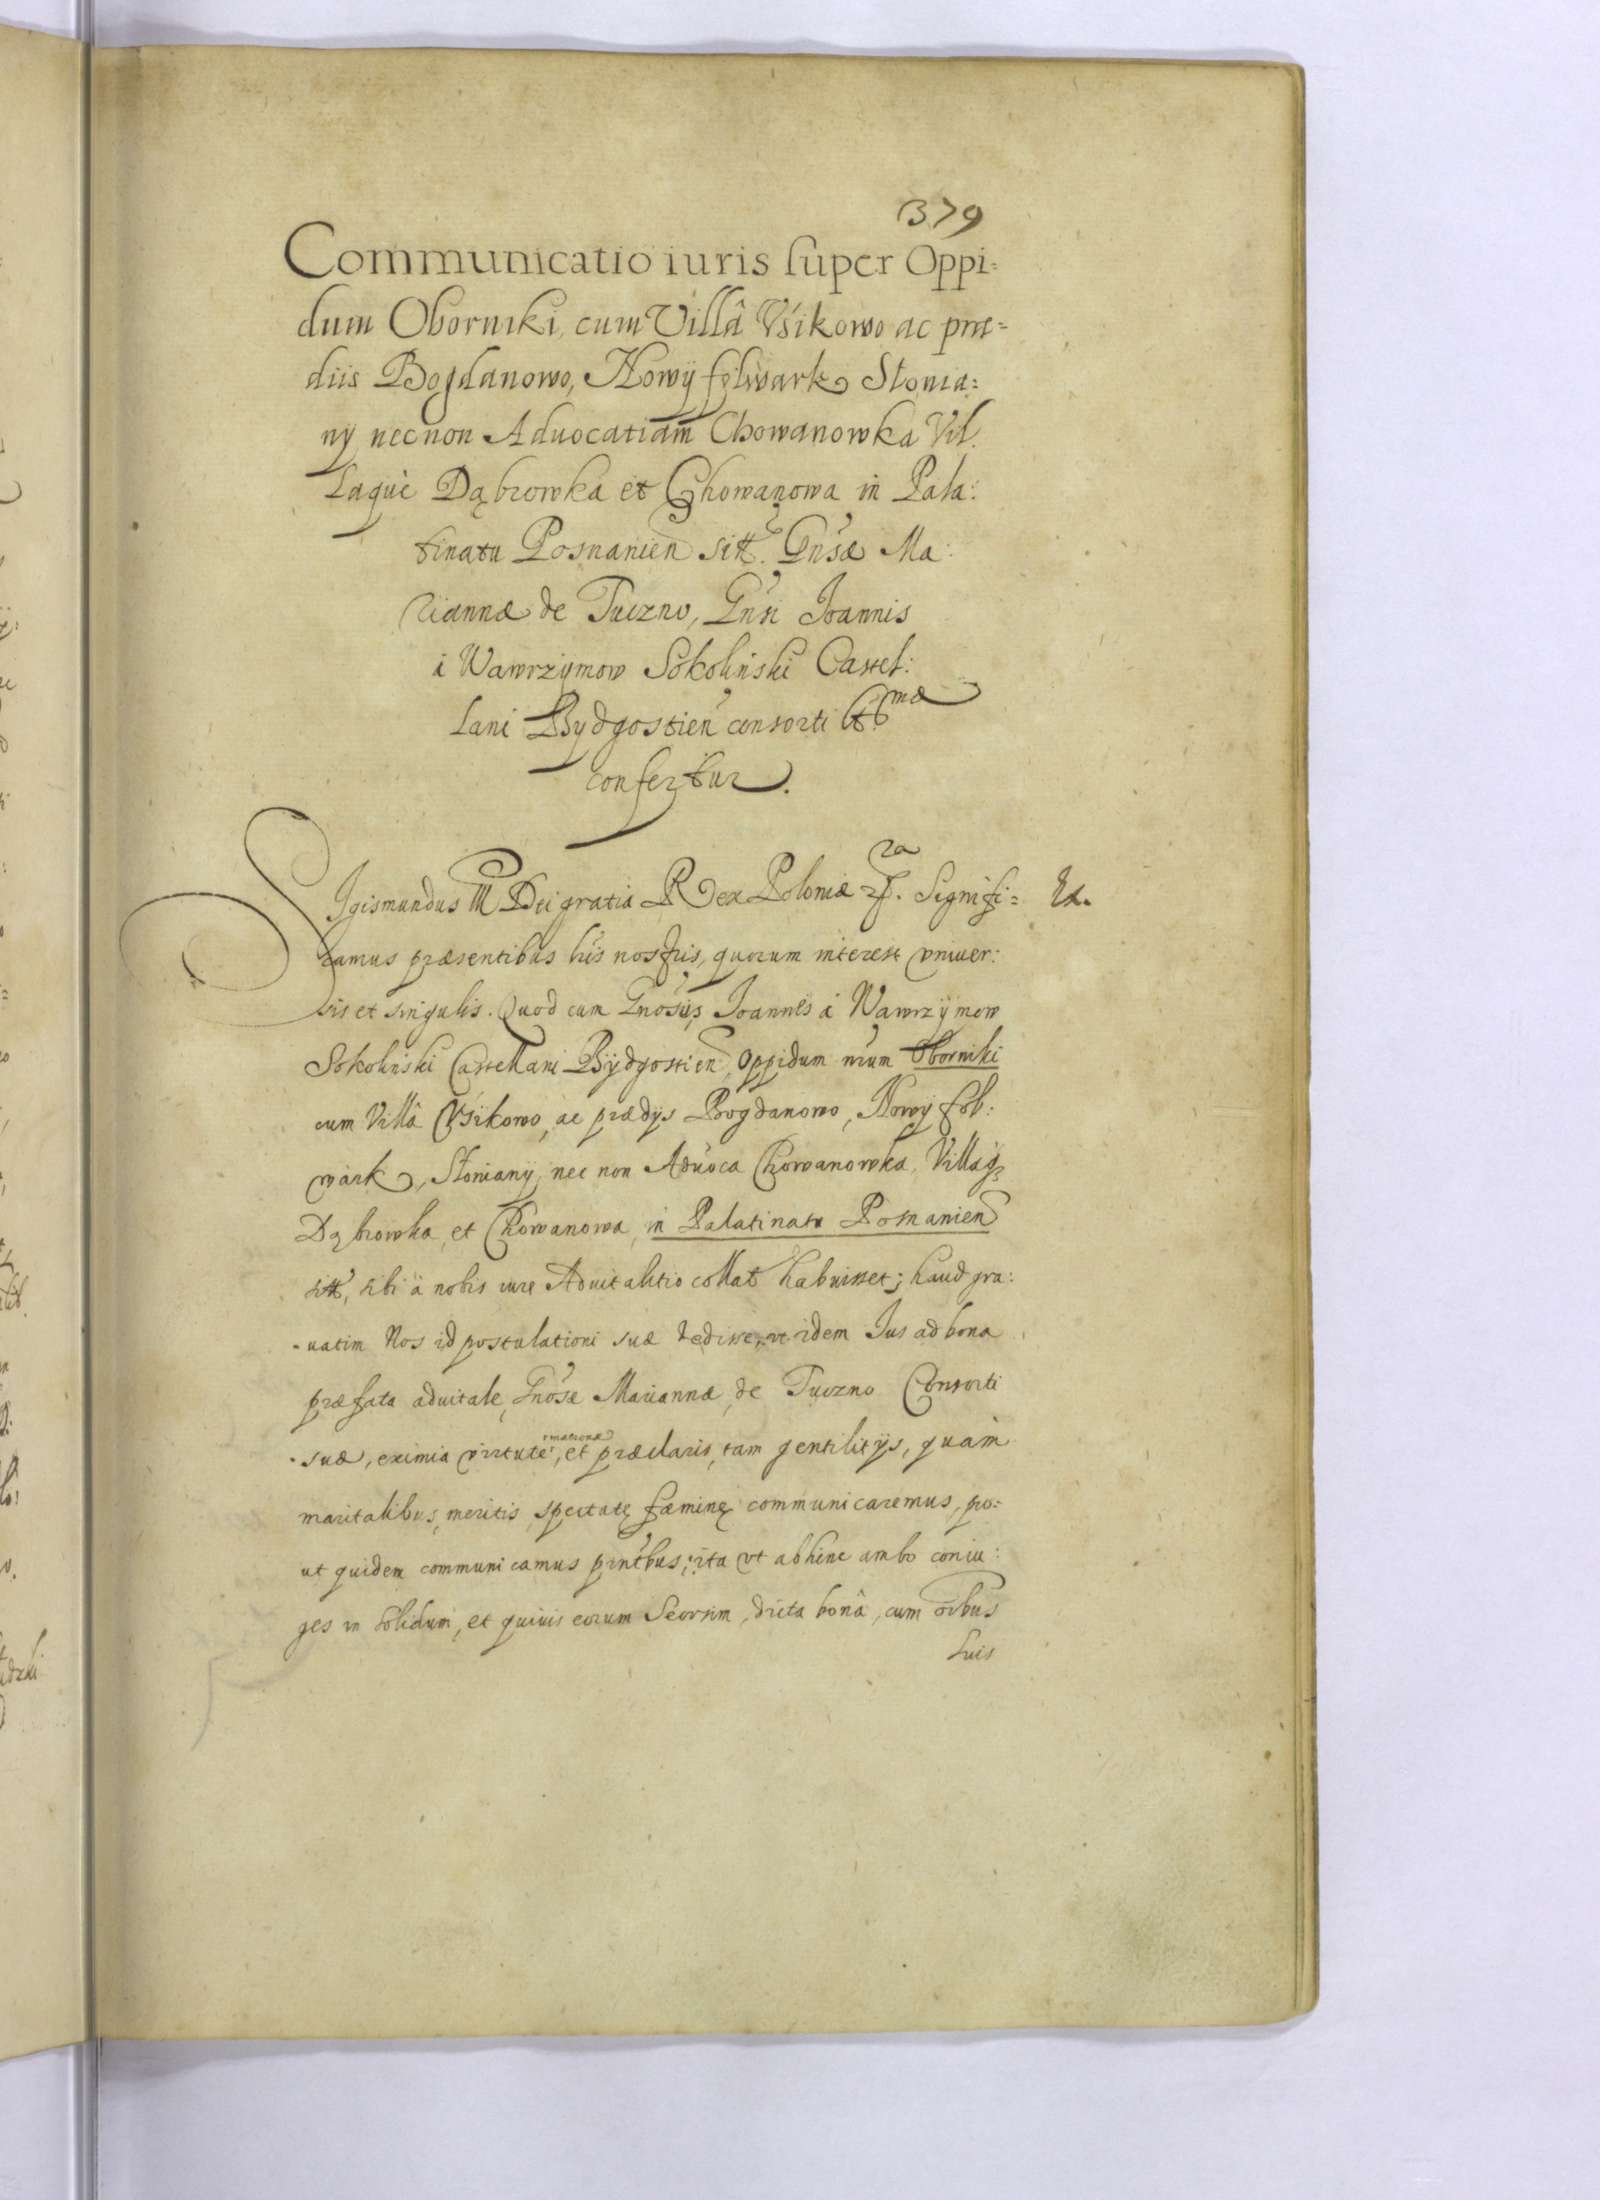 379
Communicatio iuris super Oppi=
dum Oborniki, cum Villâ Vśikowo ac præ=
diis Bogdanowo, Nowÿ folwark Stonia:
nÿ necnon Aduocatiam Chowanowka Vil
laquè Dąbrowka et Chowanowa in Pala:
tinatu Posnanien sitt. Gnsæ Ma:
riannæ de Tuczno, Gnsi Joannis
à Wawrzymow Sokolinski Castel:
lani Bydgostien consorti
confertur.
Sigismundus III Dei gratia Rex Poloniæ Signifi=
camus præsentibus lris nostris, quorum interest vniuer:
sis et singulis. Quod cum Gnosus Joannes à Wawrzÿmow
Sokolinski Castellani Bÿdgostien, Oppidum nrum Oborniki
cum Villâ Vśikowo, ac prædijs Bogdanowo, Nowÿ fol:
wark, Stonianÿ, nec non Aduoca Chowanowka, Villaq
Dąbrowka, et Chowanowa, in Palatinatu Posnanien
sitt, sibi à nobis iure Aduitalitio collat habuisset; haud gra:
uatim Nos id postulationi suæ dedisse, vt idem Jus ad bona
præfata aduitale, Gnosæ Mariannæ, de Tuczno Consorti
suæ, eximia virtute matronæ, et præclaris, tam gentilitijs, quàm
maritalibus, meritis, spectatę fæminę communicaremus, pro=
ut quidem communicamus pntbus; ita vt abhinc ambo coniu:
ges in solidum, et quiuis eorum Seorsim, dicta bona, cum oibus
suis